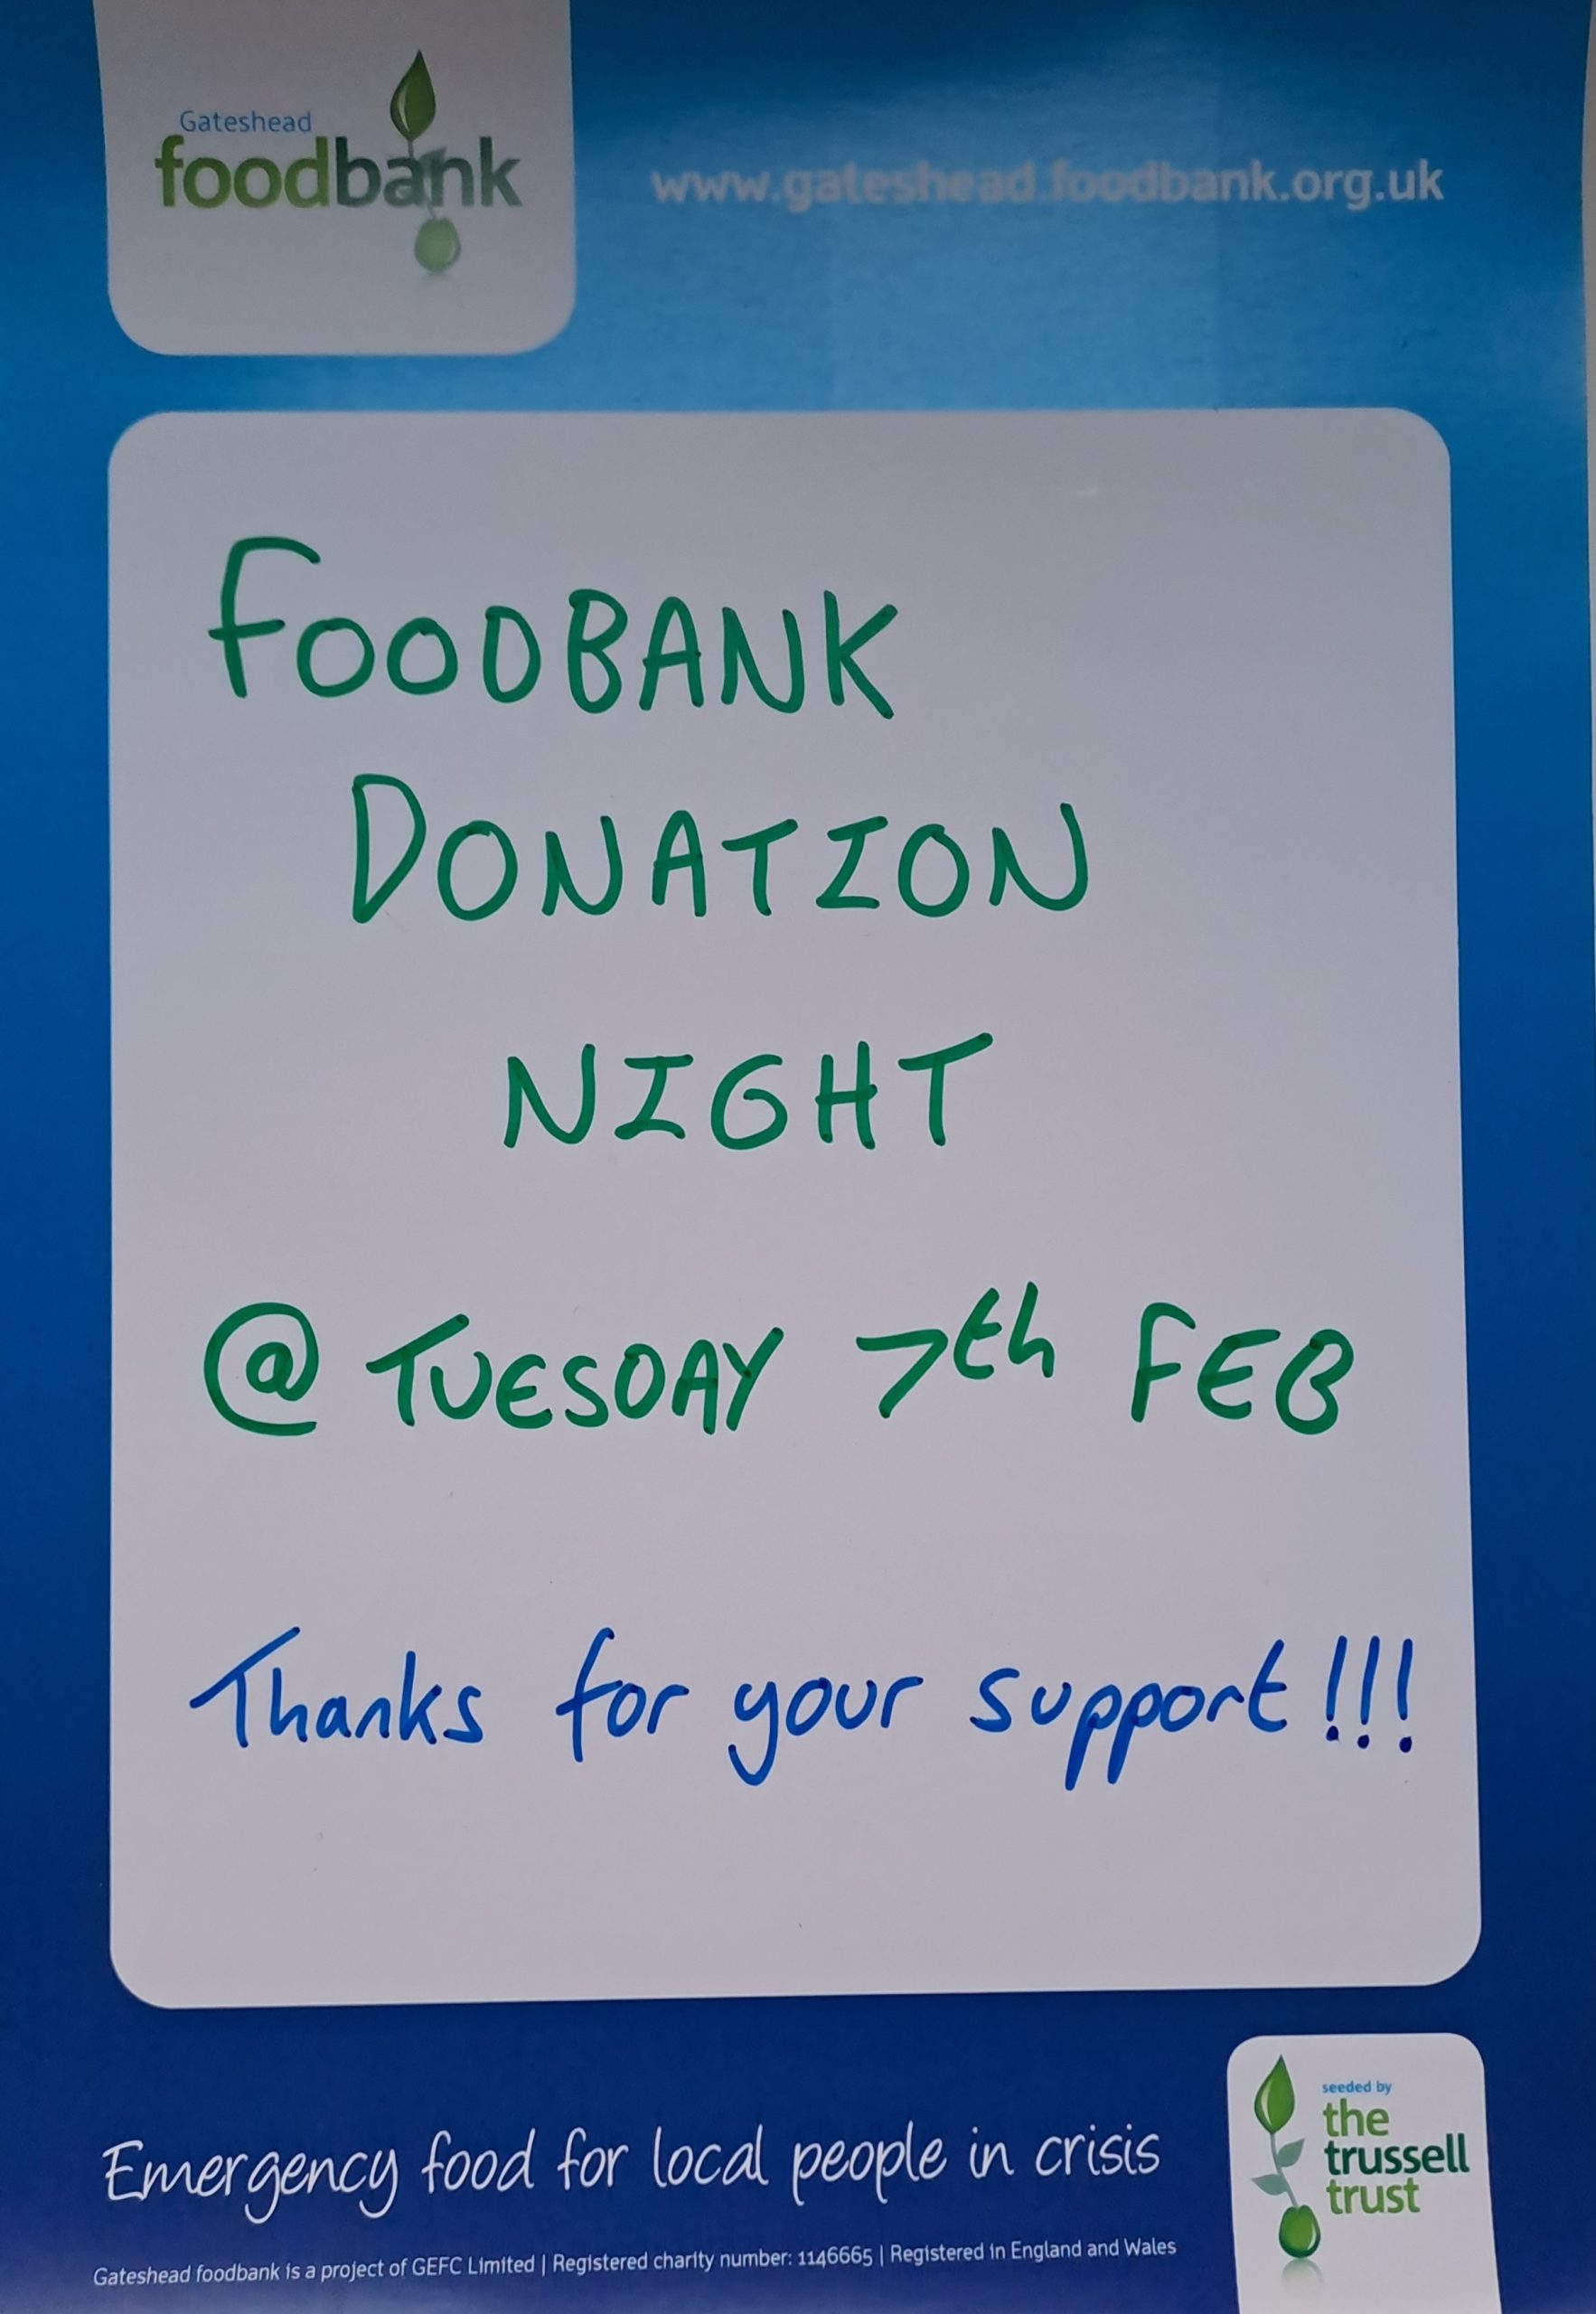 Gateshead
foodbank
www.gateshead.foodbank.org.uk
FOODBANK
DONATION
NIGHT
@ TUESDAY 7th FEB
Thanks for your support!!!
Emergency food for local people in crisis
seeded by
the
trussell
trust
Gateshead foodbank is a project of GEFC Limited | Registered charity number: 1146665 | Registered in England and Wales